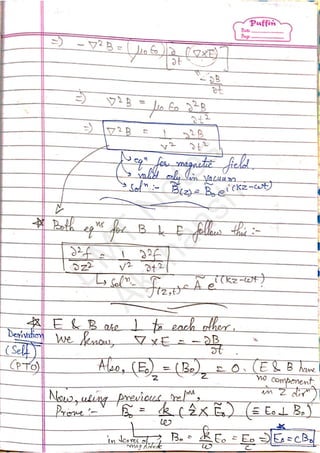 Puffin
Date
Page
=) - ∇²B = μ₀ε₀ [∂/∂t (∇×E)]
- ∂B/∂t
=) ∇²B = μ₀ε₀ ∂²B/∂t²
=) ∇²B = 1/v² ∂²B/∂t²
↳ eqⁿ for magnetic field.
→ valid only in vacuum
→ solⁿ :- B̃(z) = B₀ e^i(kz-ωt)
* Both eqⁿˢ for B & E follow this :-
∂²f/∂z² = 1/v² ∂²f/∂t²
↳ Solⁿ- f̃(z,t) = Ã e^i(kz-ωt)
* E & B are ⊥ to each other.
Derivation
We know, ∇×E = - ∂B/∂t
(Self)
(PTO)
Also, (E₀)z = (B₀)z = 0. (E & B have
no component
in z dirⁿ)
Now, using previous relⁿˢ,
Prove :- B̃₀ = k/ω (ẑ × Ẽ₀) (≡ E₀ ⊥ B₀)
in terms of → B₀ = k/ω E₀ = E₀/c => E₀ = cB₀
magnitude